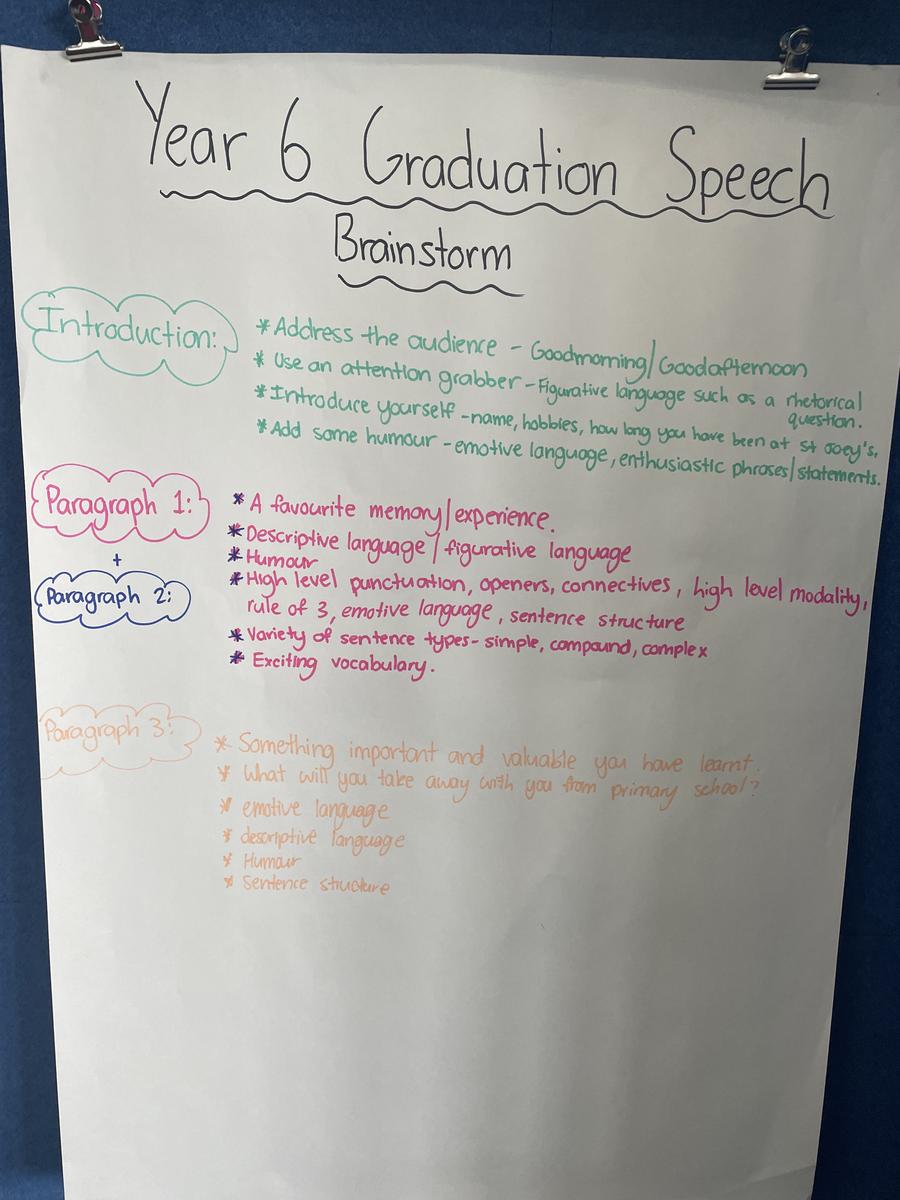 Year 6 Graduation Speech
Brainstorm
Introduction:
* Address the audience - Goodmorning/Goodafternoon
* Use an attention grabber - Figurative language such as a rhetorical
question.
* Introduce yourself - name, hobbies, how long you have been at St Joey's.
* Add some humour - emotive language, enthusiastic phrases/statements.
Paragraph 1:
+
Paragraph 2:
* A favourite memory/experience.
* Descriptive language/figurative language
* Humour
* High level punctuation, openers, connectives, high level modality,
rule of 3, emotive language, sentence structure
* Variety of sentence types - simple, compound, complex
* Exciting vocabulary.
Paragraph 3:
* Something important and valuable you have learnt.
* What will you take away with you from primary school?
* emotive language
* descriptive language
* Humour
* Sentence structure